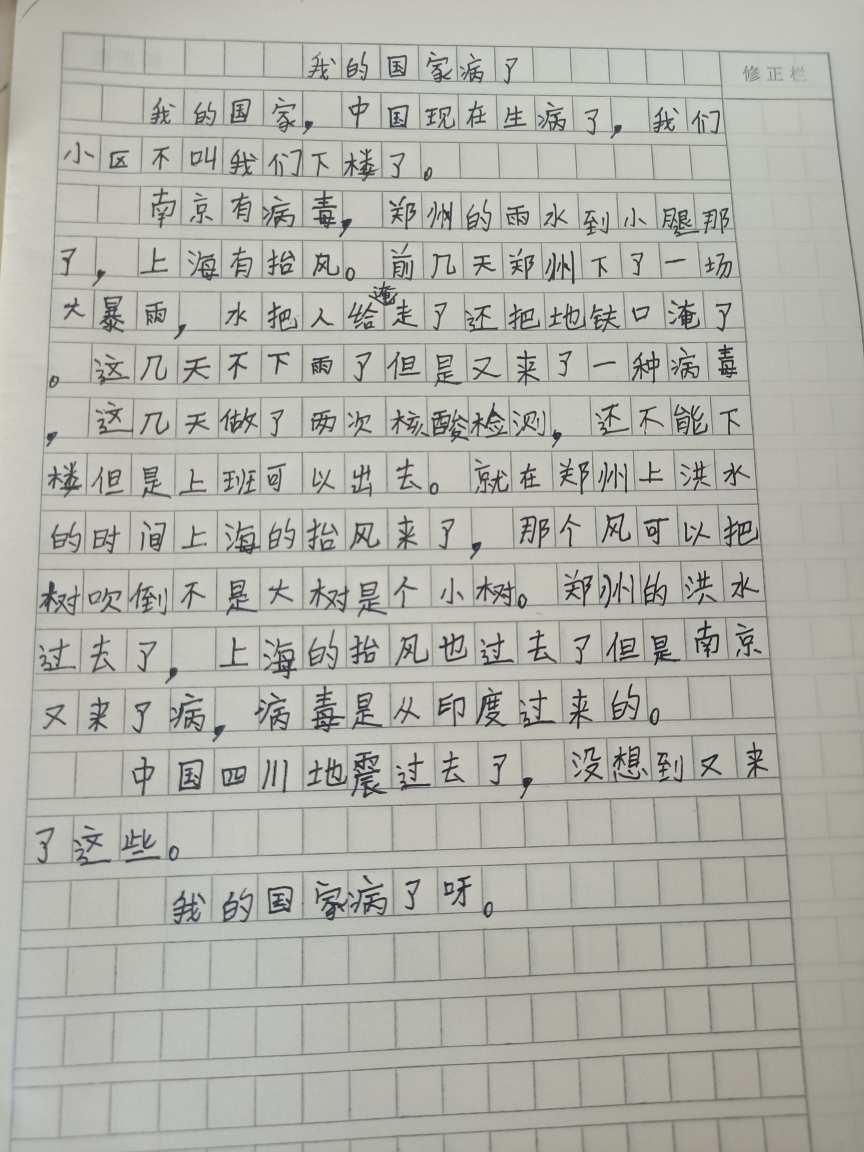 我的国家病了
修正栏
我的国家，中国现在生病了，我们
小区不叫我们下楼了。
南京有病毒，郑州的雨水到小腿那
了，上海有抬风。前几天郑州下了一场
大暴雨，水把人给淹走了还把地铁口淹了
。这几天不下雨了但是又来了一种病毒
，这几天做了两次核酸检测，还不能下
楼但是上班可以出去。就在郑州上洪水
的时间上海的抬风来了，那个风可以把
树吹倒不是大树是个小树。郑州的洪水
过去了，上海的抬风也过去了但是南京
又来了病，病毒是从印度过来的。
中国四川地震过去了，没想到又来
了这些。
我的国家病了呀。